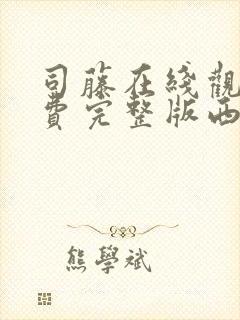 司藤在綫觀
費完整版西
熊學斌